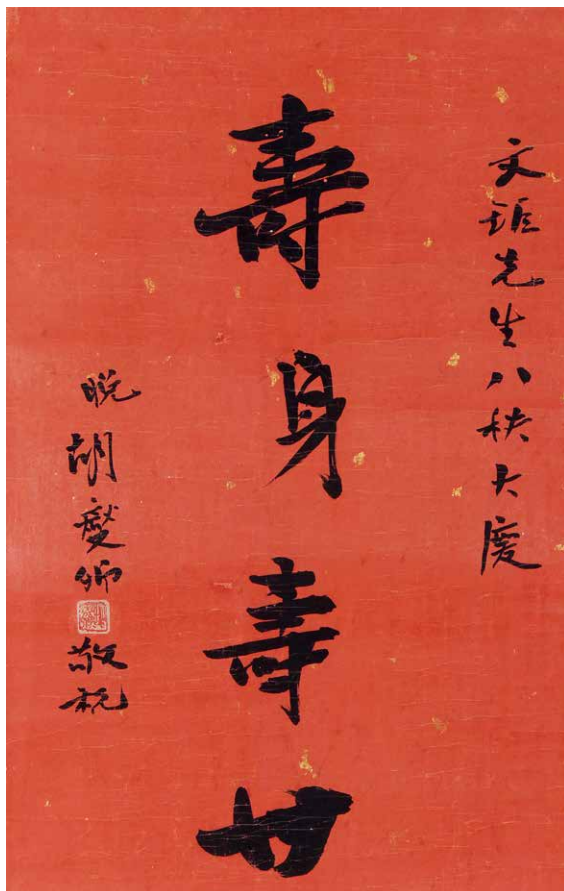 文先生八秩大慶
壽身壽世
晚胡卿敬祝